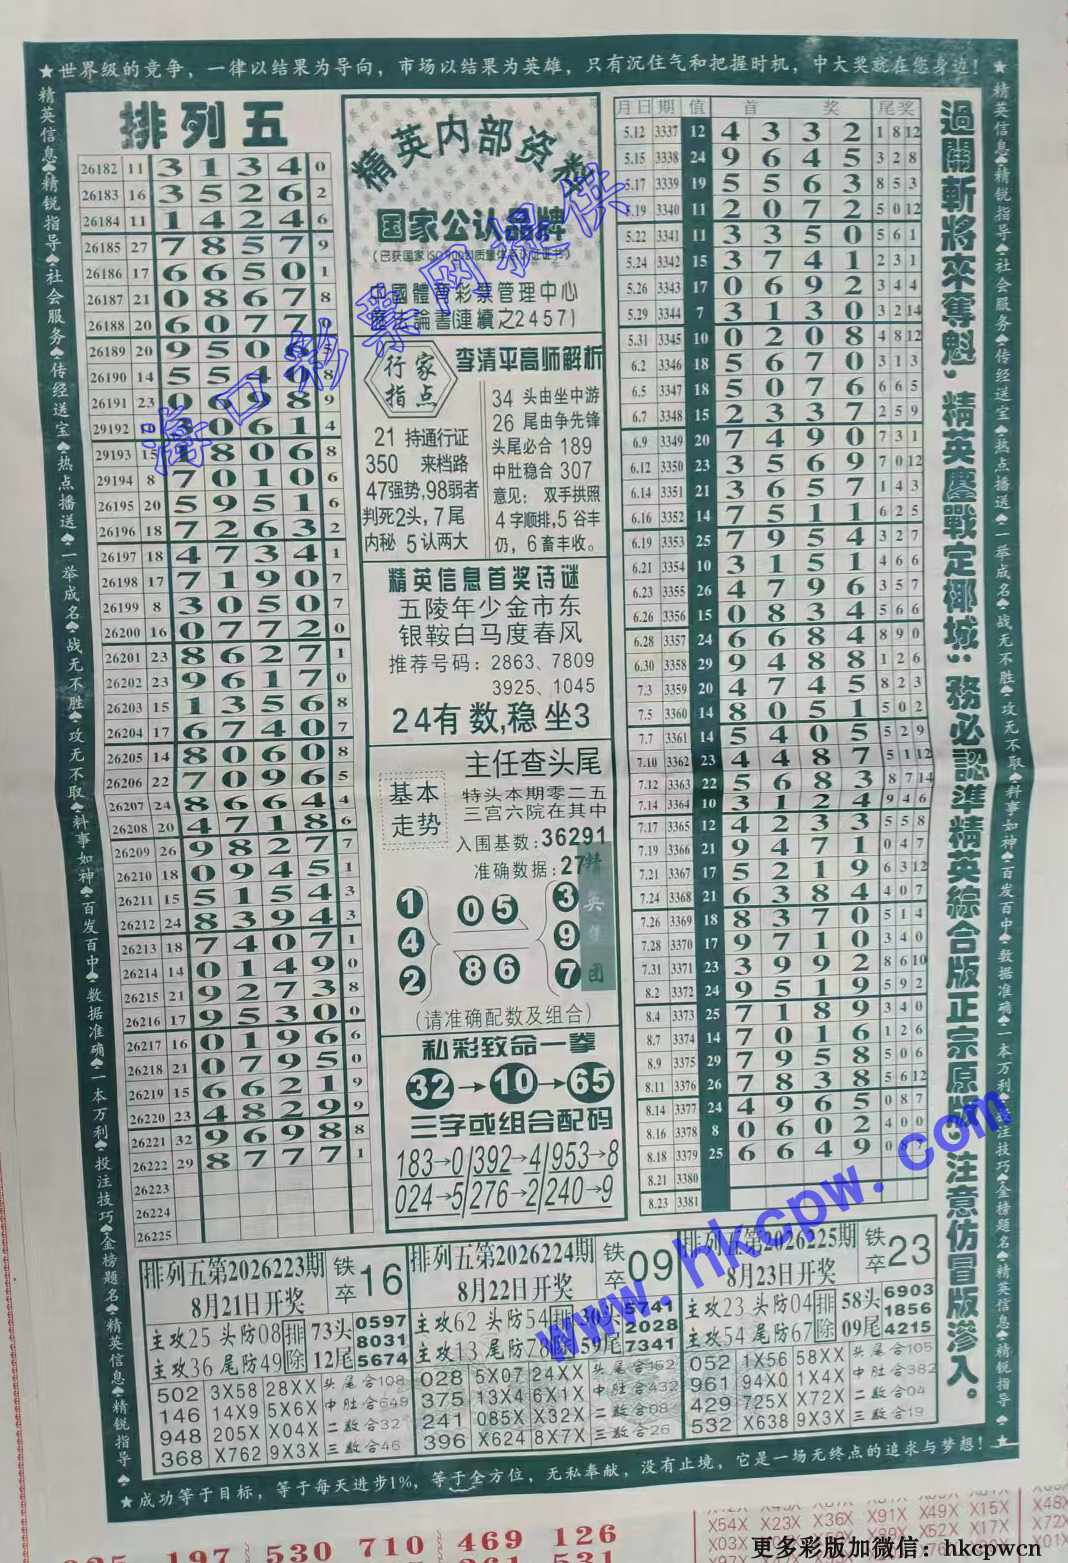 ★世界级的竞争，一律以结果为导向，市场以结果为英雄，只有沉住气和把握时机，中大奖就在您身边！★
精英信息♠精锐指导♠社会服务♠传经送宝♠热点播送♠一举成名♠战无不胜♠攻无不取♠料事如神♠百发百中♠数据准确♠一本万利♠投注技巧♠金榜题名♠精英信息♠精锐指导♠
排列五
26182 11 3 1 3 4 0
26183 16 3 5 2 6 2
26184 11 1 4 2 4 6
26185 27 7 8 5 7 9
26186 17 6 6 5 0 1
26187 21 0 8 6 7 8
26188 20 6 0 7 7 0
26189 20 9 5 0 6 5
26190 14 5 5 4 0 8
26191 23 0 6 9 8 9
29192 3 0 6 1 4
29193 15 1 8 0 6 8
29194 8 7 0 1 0 6
26195 20 5 9 5 1 6
26196 18 7 2 6 3 2
26197 18 4 7 3 4 1
26198 17 7 1 9 0 7
26199 8 3 0 5 0 7
26200 16 0 7 7 2 0
26201 23 8 6 2 7 1
26202 23 9 6 1 7 0
26203 15 1 3 5 6 8
26204 17 6 7 4 0 7
26205 14 8 0 6 0 8
26206 22 7 0 9 6 5
26207 24 8 6 6 4 4
26208 20 4 7 1 8 6
26209 26 9 8 2 7 7
26210 18 0 9 4 5 1
26211 15 5 1 5 4 3
26212 24 8 3 9 4 3
26213 18 7 4 0 7 1
26214 14 0 1 4 9 0
26215 21 9 2 7 3 8
26216 17 9 5 3 0 0
26217 16 0 1 9 6 6
26218 21 0 7 9 5 0
26219 15 6 6 2 1 9
26220 23 4 8 2 9 9
26221 32 9 6 9 8 8
26222 29 8 7 7 7 1
26223
26224
26225
精英内部资料
国家公认品牌
中國體育彩票管理中心
(連續之2457)
行家指点
李清平高师解析
21 持通行证
350 来档路
47强势,98弱者
判死2头,7尾
内秘 5认两大
34 头由坐中游
26 尾由争先锋
头尾必合 189
中肚稳合 307
意见：双手拱照
4字顺排,5谷丰
仍，6畜丰收。
精英信息首奖诗谜
五陵年少金市东
银鞍白马度春风
推荐号码：2863、7809
3925、1045
24有数,稳坐3
基本走势
主任查头尾
特头本期零二五
三宫六院在其中
入围基数:36291
准确数据:27
1 4 2
0 5
8 6
3 9 7
(请准确配数及组合)
私彩致命一拳
32→10→65
三字或组合配码
183→0 392→4 953→8
024→5 276→2 240→9
月日 期 值 首 奖 尾奖
5.12 3337 12 4 3 3 2 1 8 12
5.15 3338 24 9 6 4 5 3 2 8
5.17 3339 19 5 5 6 3 8 5 3
5.19 3340 11 2 0 7 2 5 0 12
5.22 3341 11 3 3 5 0 5 6 1
5.24 3342 15 3 7 4 1 2 3 1
5.26 3343 17 0 6 9 2 3 4 4
5.29 3344 7 3 1 3 0 3 2 14
5.31 3345 10 0 2 0 8 4 8 12
6.2 3346 18 5 6 7 0 3 1 3
6.5 3347 18 5 0 7 6 6 6 5
6.7 3348 15 2 3 3 7 2 5 9
6.9 3349 20 7 4 9 0 7 3 1
6.12 3350 23 3 5 6 9 7 0 12
6.14 3351 21 3 6 5 7 1 4 3
6.16 3352 14 7 5 1 1 6 2 5
6.19 3353 25 7 9 5 4 3 2 7
6.21 3354 10 3 1 5 1 4 6 6
6.23 3355 26 4 7 9 6 3 5 7
6.26 3356 15 0 8 3 4 5 6 6
6.28 3357 24 6 6 8 4 8 9 0
6.30 3358 29 9 4 8 8 1 2 6
7.3 3359 20 4 7 4 5 8 2 3
7.5 3360 14 8 0 5 1 5 0 2
7.7 3361 14 5 4 0 5 5 2 9
7.10 3362 23 4 4 8 7 5 1 12
7.12 3363 22 5 6 8 3 8 7 14
7.14 3364 10 3 1 2 4 9 4 6
7.17 3365 12 4 2 3 3 5 5 8
7.19 3366 21 9 4 7 1 0 4 7
7.21 3367 17 5 2 1 9 6 3 12
7.24 3368 21 6 3 8 4 4 0 7
7.26 3369 18 8 3 7 0 5 1 4
7.28 3370 17 9 7 1 0 3 4 0
7.31 3371 23 3 9 9 2 8 6 10
8.2 3372 24 9 5 1 9 5 9 2
8.4 3373 25 7 1 8 9 3 4 0
8.7 3374 14 7 0 1 6 1 2 6
8.9 3375 29 7 9 5 8 5 0 6
8.11 3376 26 7 8 3 8 5 6 12
8.14 3377 24 4 9 6 5 0 8 7
8.16 3378 8 0 6 0 2 4 0 0
8.18 3379 25 6 6 4 9 0
8.21 3380
8.23 3381
過關斬將來奪魁，精英鏖戰定椰城；務必認準精英綜合版正宗原版，注意仿冒版滲入。
精英信息♠精锐指导♠社会服务♠传经送宝♠热点播送♠一举成名♠战无不胜♠攻无不取♠料事如神♠百发百中♠数据准确♠一本万利♠投注技巧♠金榜题名♠精英信息♠精锐指导♠
排列五第2026223期
8月21日开奖
铁卒16
主攻25 头防08 排除 73头
主攻36 尾防49 12尾
0597
8031
5674
502 3X58 28XX 头尾合108
146 14X9 5X6X 中肚合649
948 205X X04X 二数合32
368 X762 9X3X 三数合46
排列五第2026224期
8月22日开奖
铁卒09
主攻62 头防54 排除 30头
主攻13 尾防78 59尾
5741
2028
7341
028 5X07 24XX 头尾合162
375 13X4 6X1X 中肚合432
241 085X X32X 二数合08
396 X624 8X7X 三数合26
排列五第2026225期
8月23日开奖
铁卒23
主攻23 头防04 排除 58头
主攻54 尾防67 09尾
6903
1856
4215
052 1X56 58XX 头尾合105
961 94X0 1X4X 中肚合382
429 725X X72X 二数合04
532 X638 9X3X 三数合19
★成功等于目标，等于每天进步1%，等于全方位，无私奉献，没有止境，它是一场无终点的追求与梦想！★
海口彩票网提供
www.hkcpw.com
197 530 710 469 126
X54X X23X X36X X91X X49X X15X
更多彩版加微信：hkcpwcn